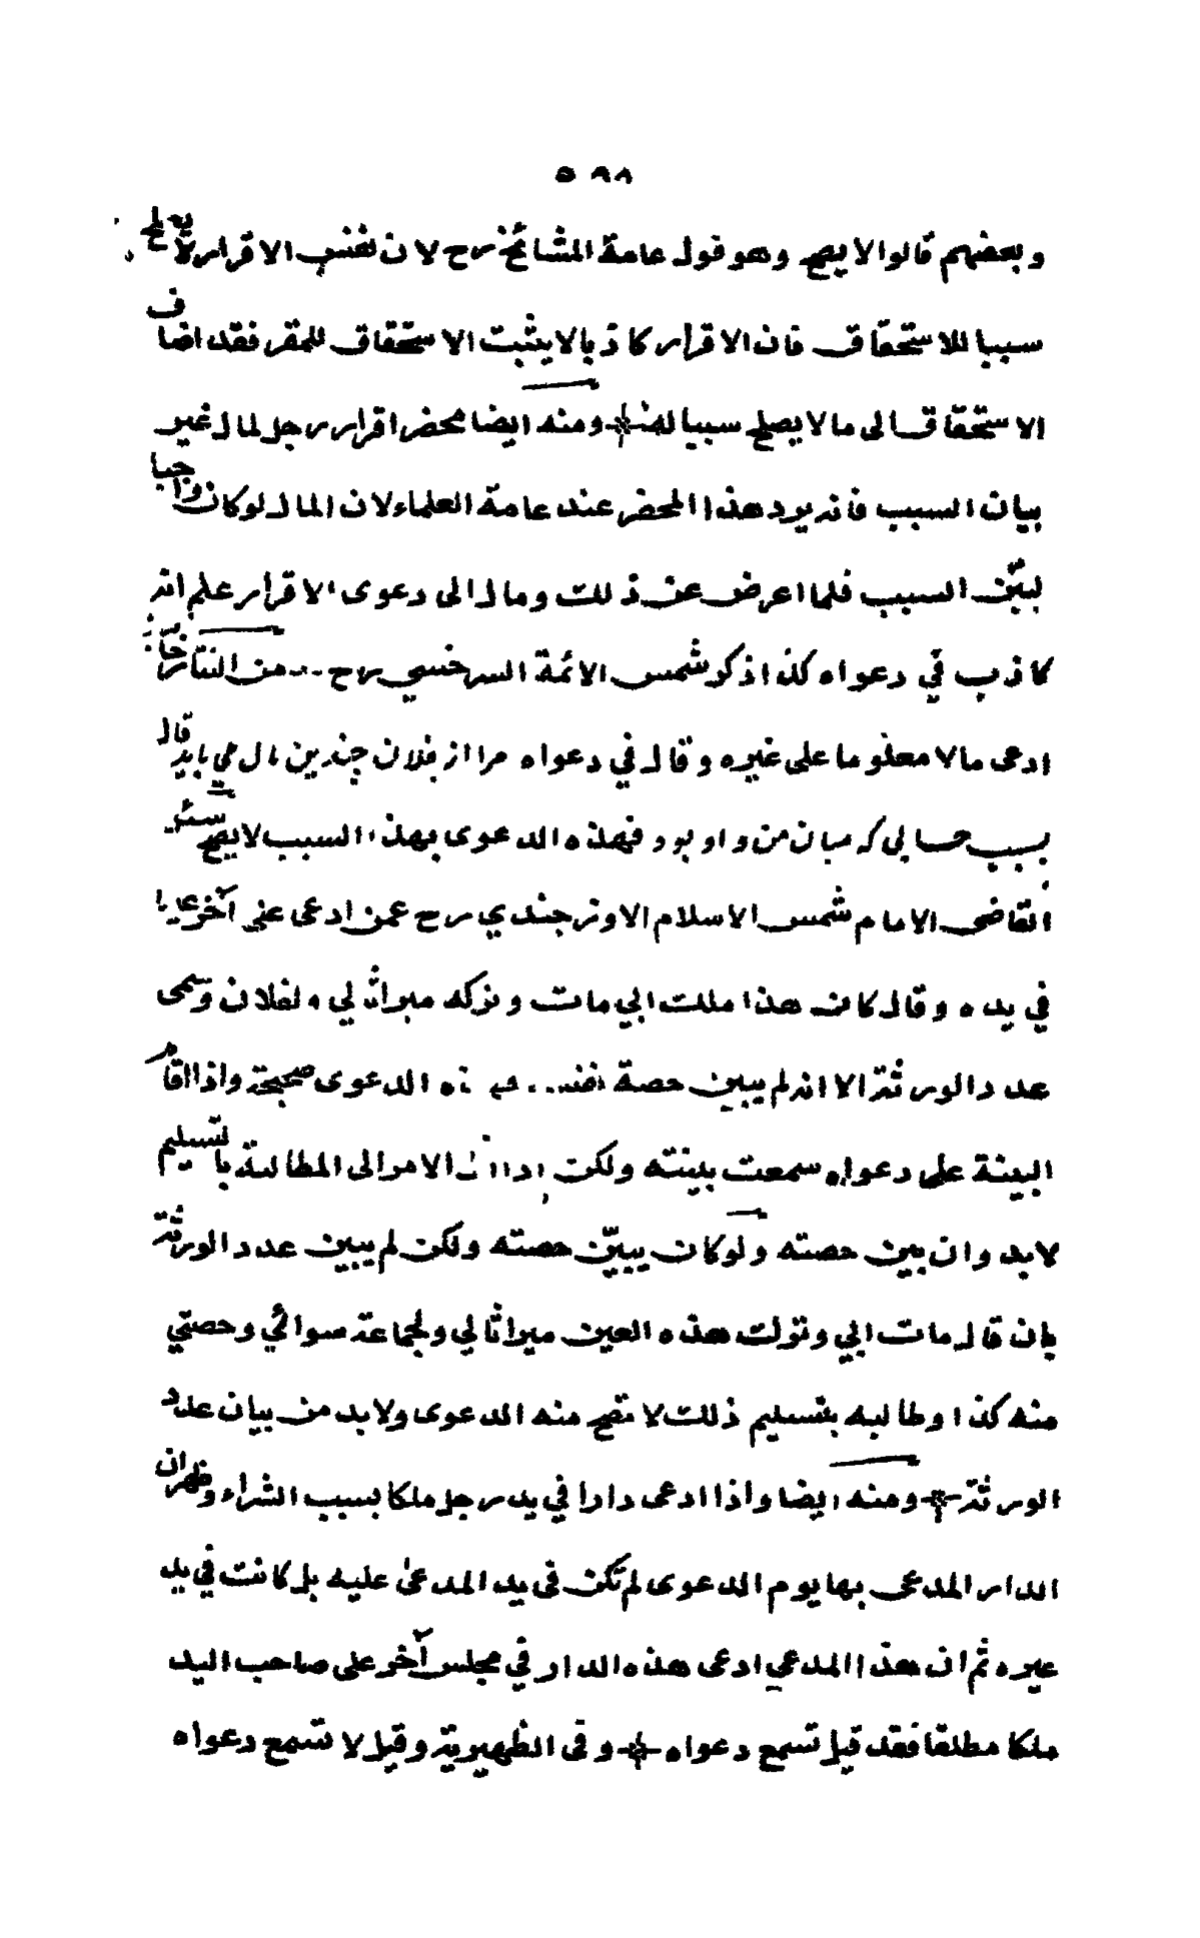 ٥٩٨
وبعضهم قالوا لا يصح وهو قول عامة المشائخ رح لان نفس الاقرار لا يصلح
سببا للاستحقاق فان الاقرار كاذبا لا يثبت الاستحقاق للمقر فقد اضاف
الاستحقاق الى ما لا يصلح سببا لهذا ومنه ايضا محضر اقرار رجل لمال غير
بيان السبب فانه يرد هذا المحضر عند عامة العلماء لان المال لو كان واجبا
لبيّن السبب فلما اعرض عن ذلك ومال الى دعوى الاقرار علم انه
كاذب في دعواه كذا ذكر شمس الائمة السرخسي رح من التتارخانية
ادعى مالا معلوما على غيره وقال في دعواه مرا از فلان چندين مال مى بايد قال
بسبب حسابي كه ميان من واو بود فهذه الدعوى بهذا السبب لا يصح سئل
القاضى الامام شمس الاسلام الاوزجندي رح عمن ادعى على آخر عينا
في يده وقال كان هذا ملك ابي مات وتركه ميراثا لي ولفلان وسمى
عدد الورثة الا انه لم يبين حصة نفسه الدعوى صحيحة واذا اقام
البينة على دعواه سمعت بينته ولكن اذا آل الامر الى المطالبة بالتسليم
لابد وان يبين حصته ولو كان يبيّن حصته ولكن لم يبين عدد الورثة
بان قال مات ابي وترك هذه العين ميراثا لي ولجماعة سوائي وحصتي
منه كذا وطالبه بتسليم ذلك لا تصح منه الدعوى ولابد من بيان عدد
الورثة ومنه ايضا واذا ادعى دارا في يد رجل ملكا بسبب الشراء وظهر ان
الدار المدعى بها يوم الدعوى لم تكن فى يد المدعى عليه بل كانت في يد
غيره ثم ان هذا المدعي ادعى هذه الدار في مجلس آخر على صاحب اليد
ملكا مطلقا فقد قيل تسمع دعواه وفى الظهيرية وقيل لا تسمع دعواه